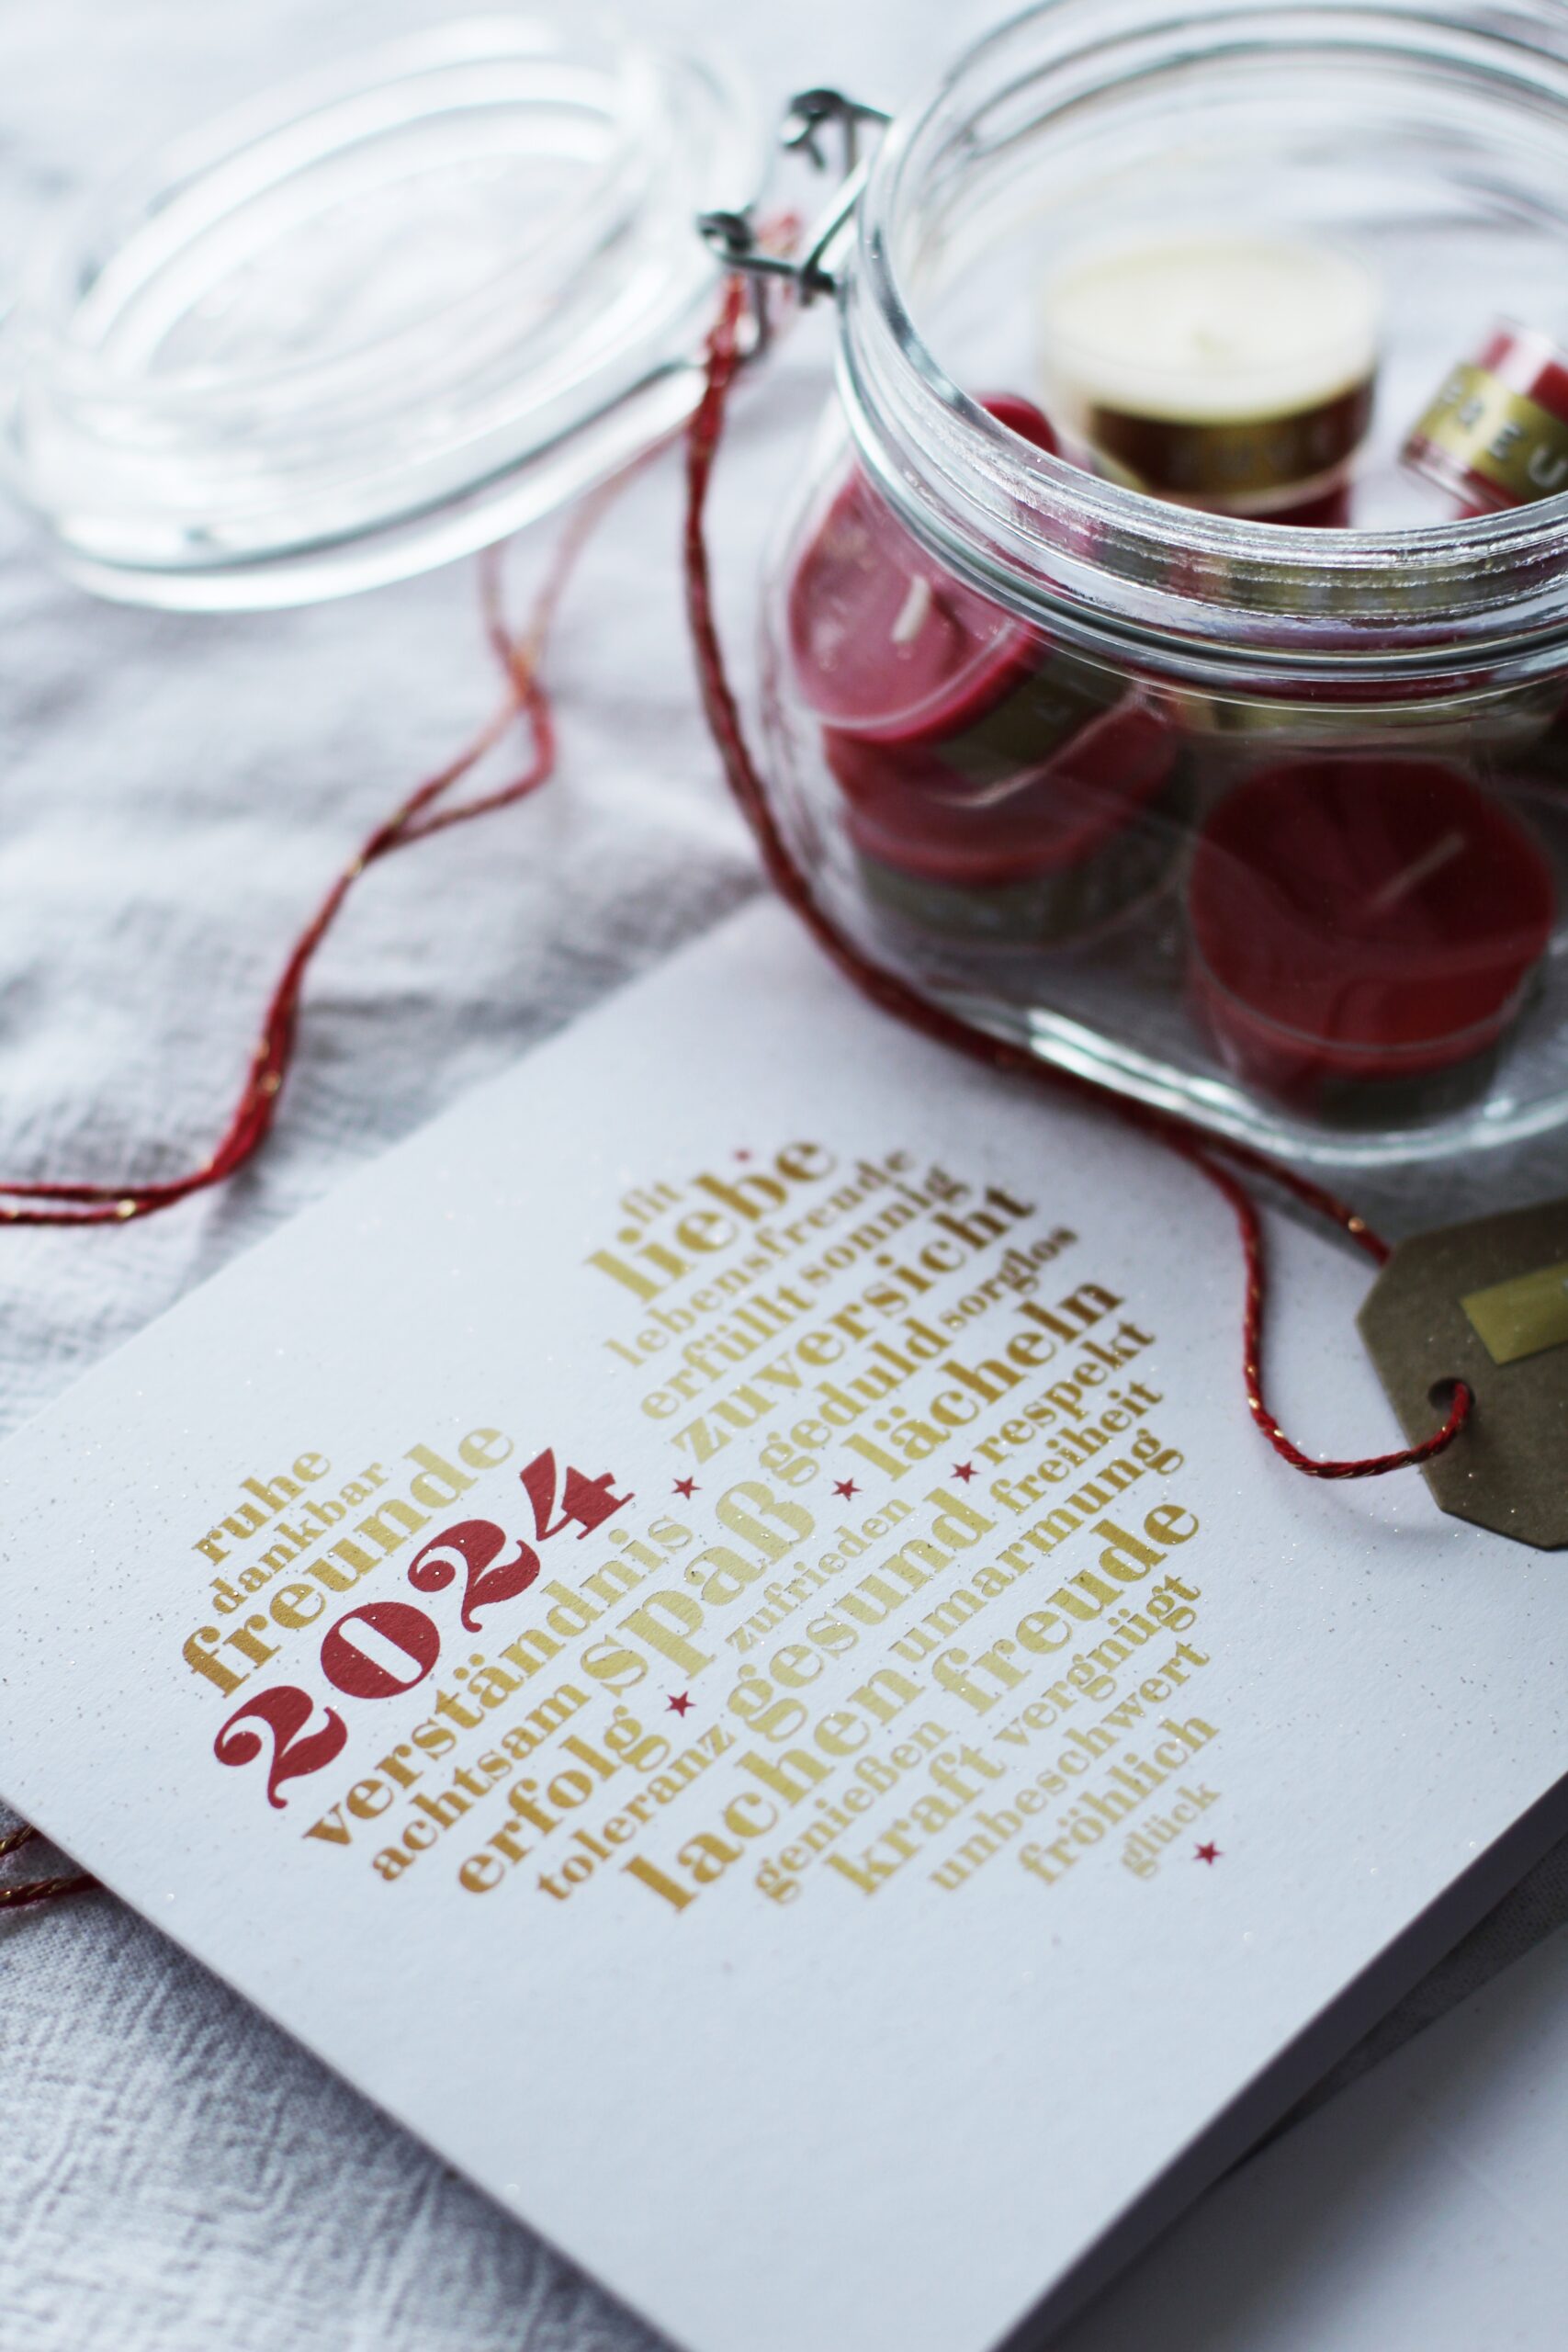 FREU
fit
liebe
lebensfreude
erfüllt sonnig
zuversicht
ruhe
dankbar
freunde
2024
geduld sorglos
verständnis
achtsam spaß lächeln
erfolg zufrieden respekt
toleranz gesund freiheit
lachen umarmung
genießen freude
kraft vergnügt
unbeschwert
fröhlich
glück